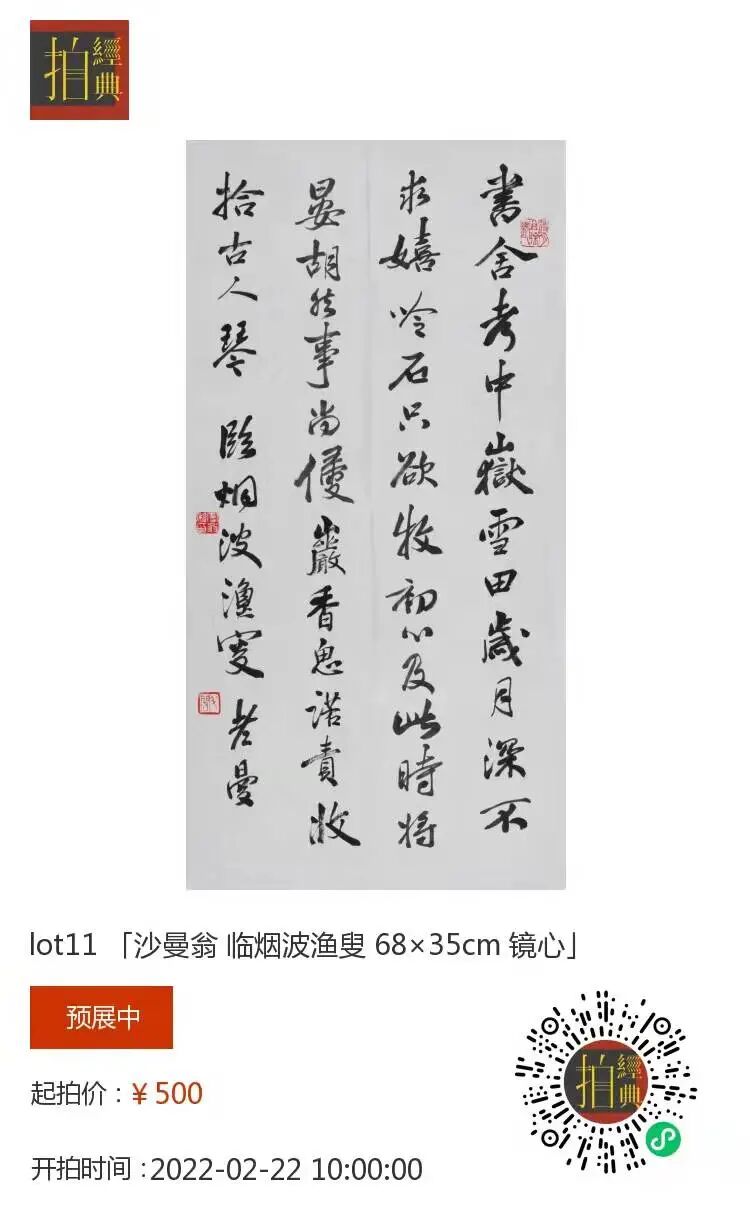 拍
經典
書舍考中嶽雪田歲月深不
求嬉吟石只欲牧初心及此時将
晏胡然事尚優巖香思諾責收
拾古人琴 臨烟波漁叟 老曼
lot11 「沙曼翁 临烟波渔叟 68×35cm 镜心」
预展中
起拍价：¥ 500
开拍时间：2022-02-22 10:00:00
拍
經典